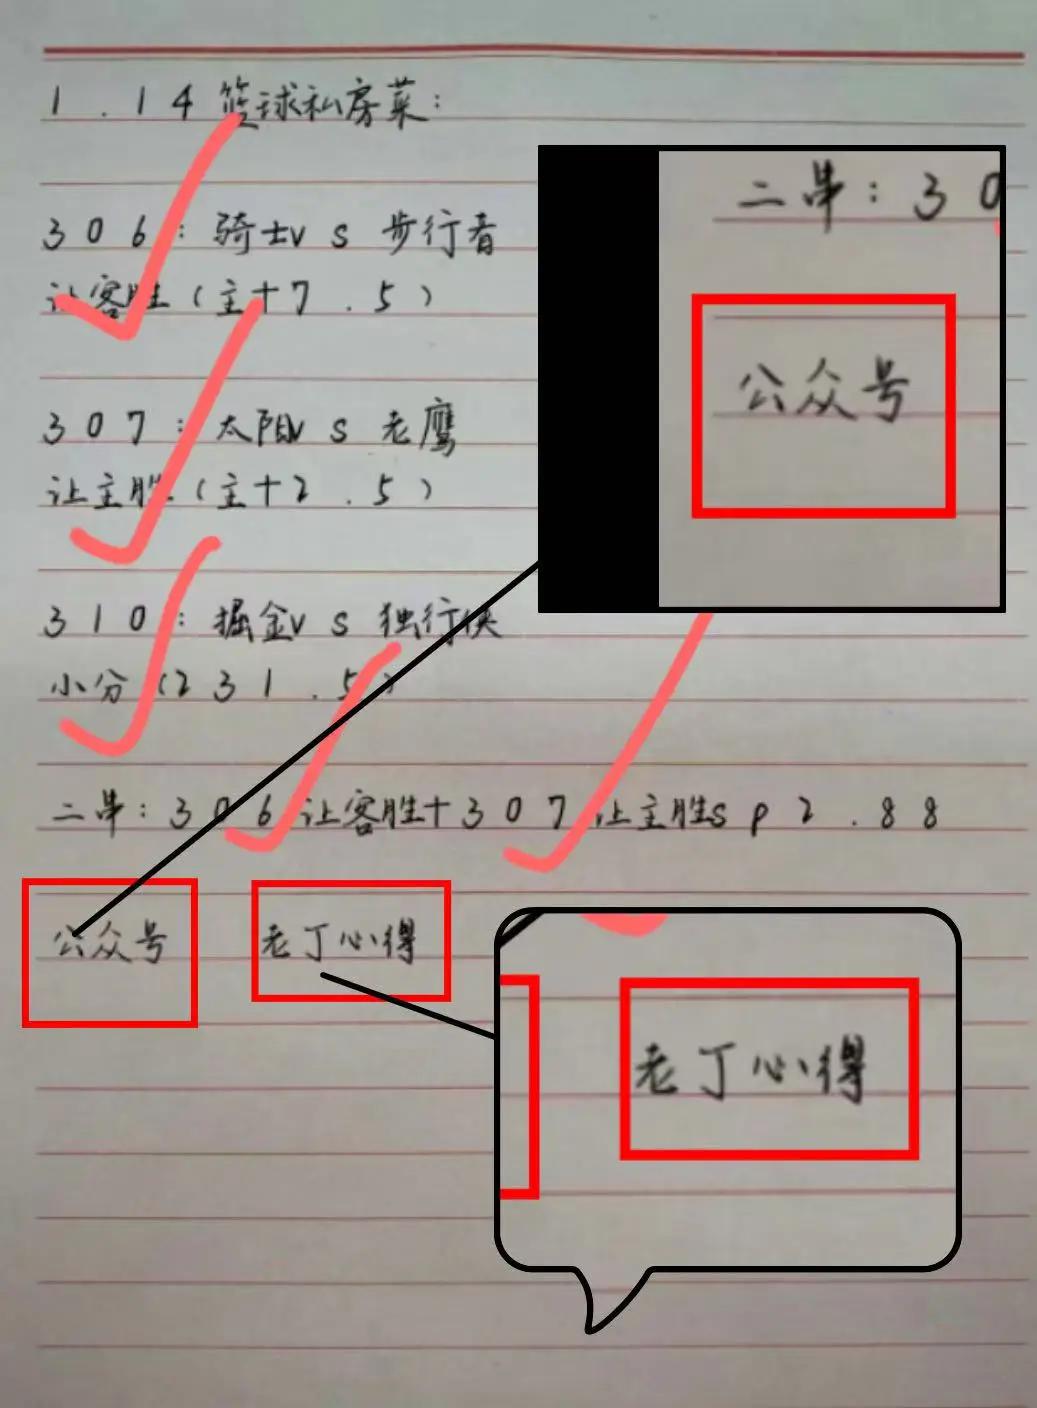 1.14篮球私房菜:
306:骑士vs步行者
让客胜(主+7.5)
307:太阳vs老鹰
让主胜(主+2.5)
310:掘金vs独行侠
小分(231.5)
二串:306让客胜+307让主胜sp2.88
公众号 老丁心得
二串:30
公众号
老丁心得